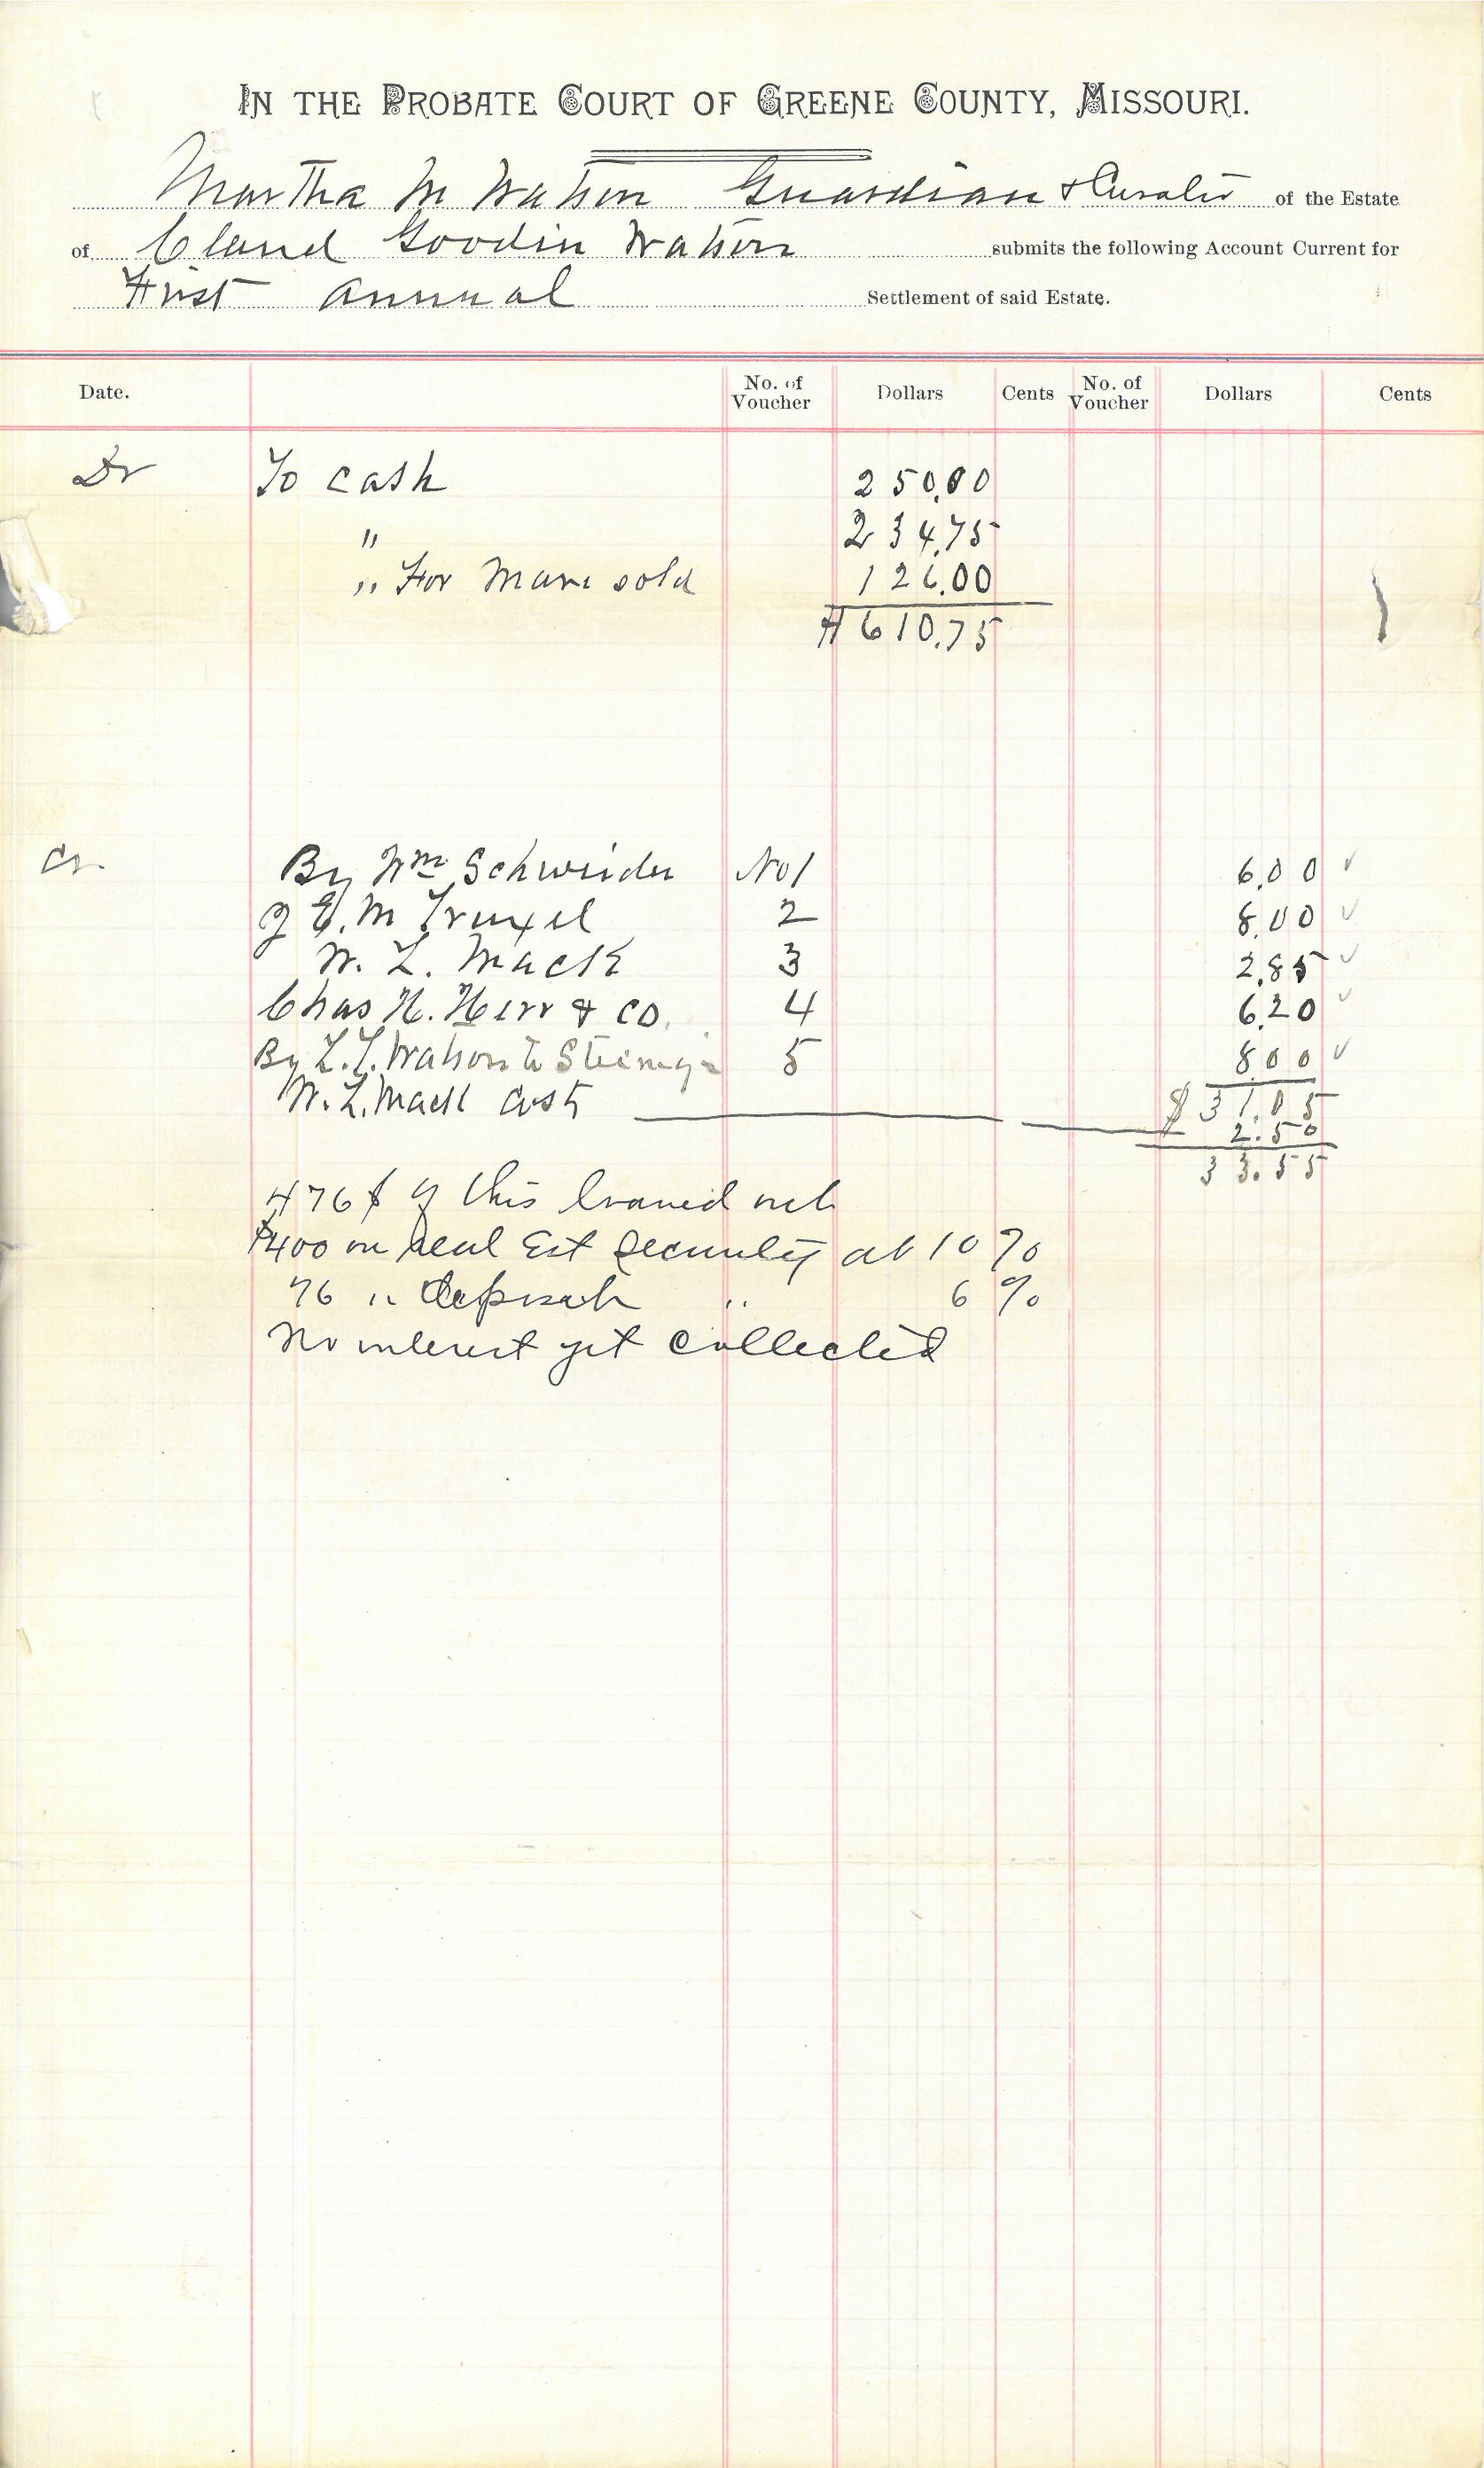 IN THE PROBATE COURT OF GREENE COUNTY, MISSOURI.
Martha M Watson Guardian & Curator of the Estate
of Claud Goodin Watson submits the following Account Current for
First Annual Settlement of said Estate.
Date. No. of Voucher Dollars Cents No. of Voucher Dollars Cents
Dr To cash 250.00
" 234.75
" For Mare sold 126.00
$610.75
Cr. By Wm Schweider No 1 6.00 ✓
J E. M Truxel 2 8.00 ✓
W. L. Mack 3 2.85 ✓
Chas H. Herr & co. 4 6.20 ✓
By L. T. Watson to 5 8.00 ✓
W. L. Mack Cost $31.05
2.50
33.55
476$ of this loaned out
$400 on Real Est Security at 10%
76 " deposit " 6%
No interest yet collected